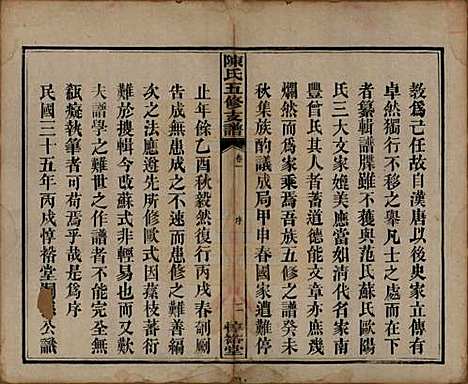 教爲亡任故自漢唐以後史家立傳有
卓然獨行不移之舉凡士之家於斯
者纂輯譜牒雖不獲與范氏蘇氏歐陽
氏三大文家媲美應當如清江名家南
豐曾氏其人著蓄道德能文章亦庶幾
爛然而爲家乘焉吾族五修之譜癸未
秋集族酌議成局甲申春國家遭難停
陳氏五修支譜
卷一
序
二
惇裕堂
止年餘乙酉秋毅然復行丙戌春剞劂
告成無患成之不速而患修之難善編
次之法應遵先所修歐式因葉枝蕃衍
難於搜輯今改蘇式非輕易也而
夫譜學之難世之作譜者不能完全無
瓻癡執筆者可苟焉乎哉是爲序
民國三十五年丙戌惇裕堂
公識